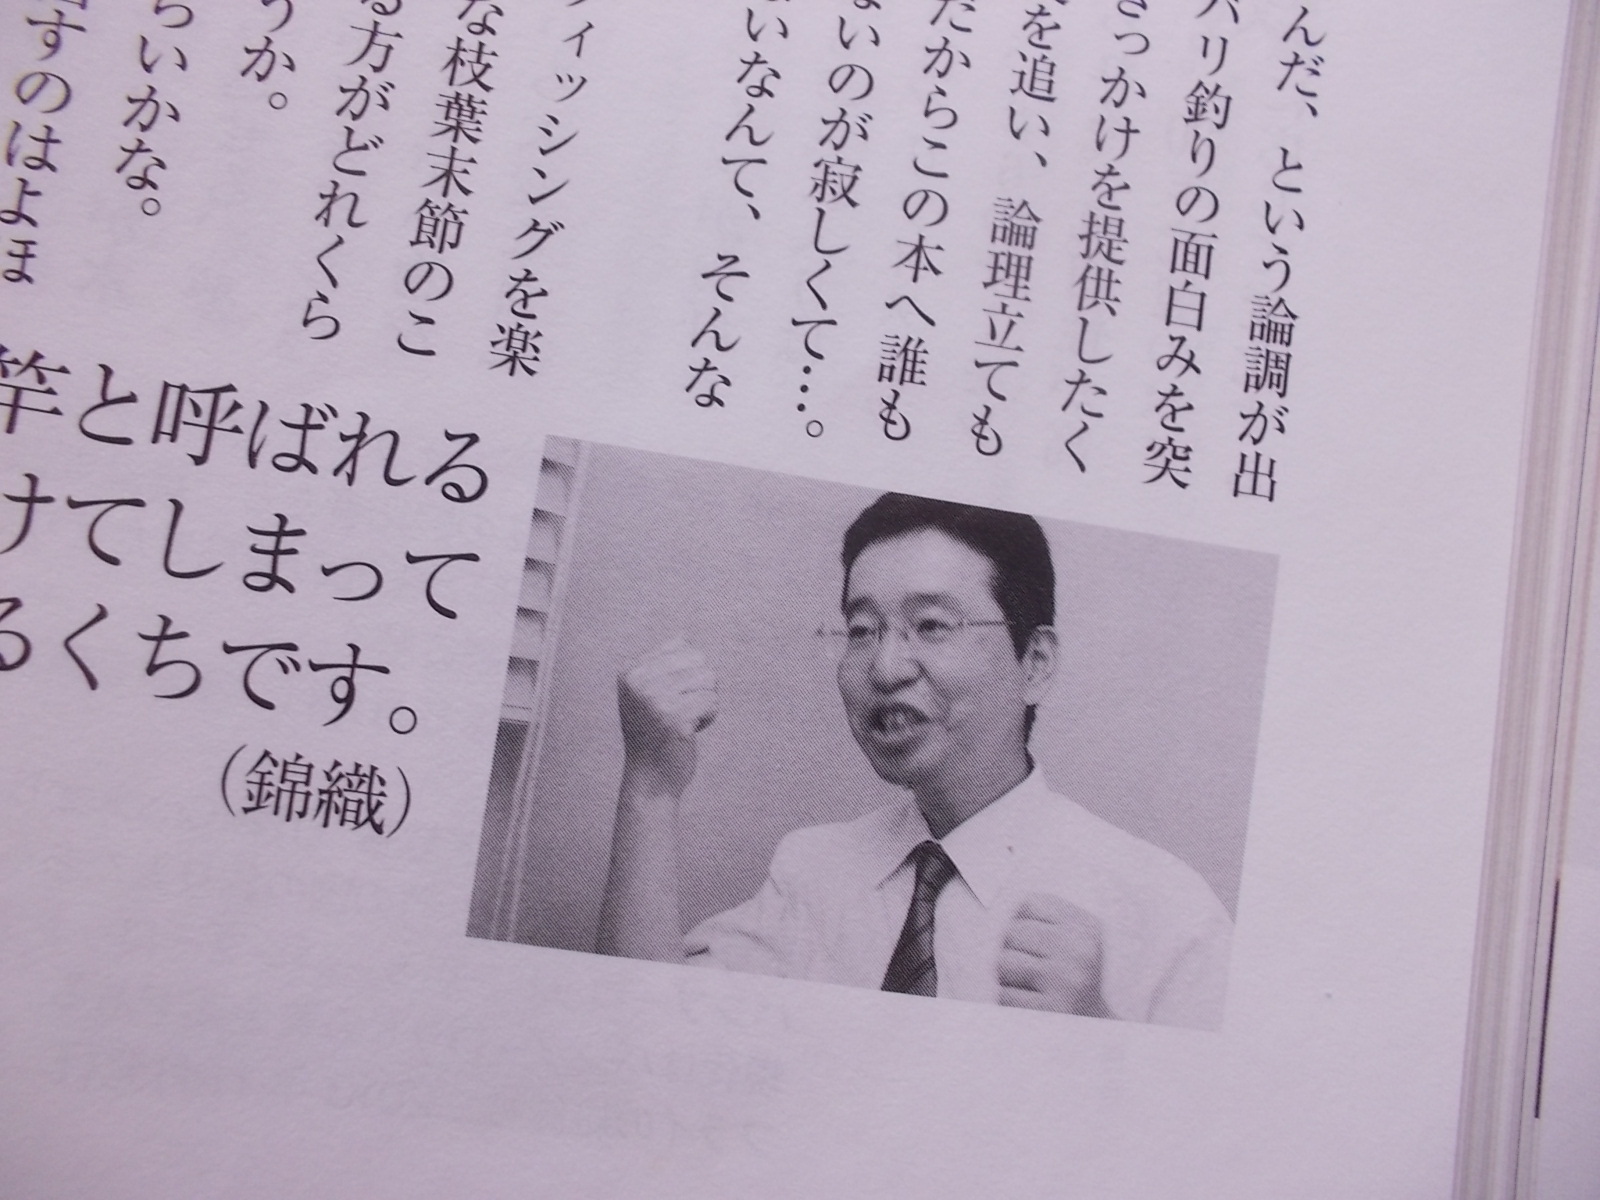 んだ、という論調が出
バリ釣りの面白みを突
きっかけを提供したく
を追い、論理立てても
だからこの本へ誰も
ないのが寂しくて…。
いなんて、そんな
ィッシングを楽
な枝葉末節のこ
る方がどれくら
うか。
らいかな。
すのはよほ
竿と呼ばれる
けてしまって
るくちです。
（錦織）